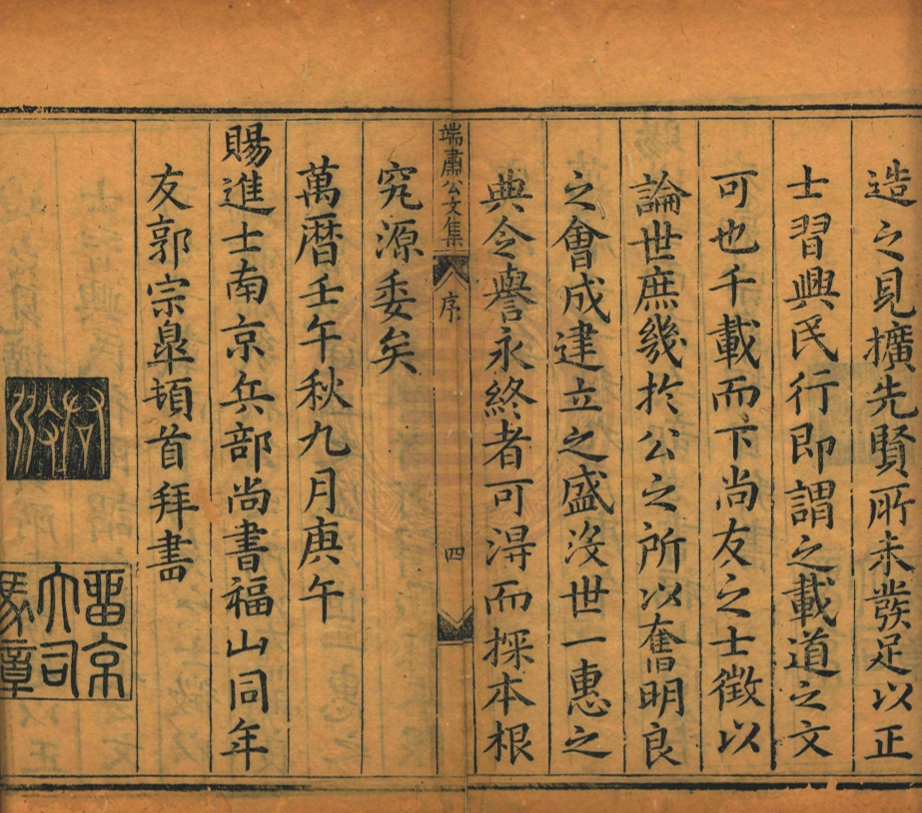 造之見擴先賢所未發足以正
士習興民行即謂之載道之文
可也千載而下尚友之士徵以
論世庶幾於公之所以奮明良
之會成建立之盛沒世一惠之
典令譽永終者可淂而探本根
端肅公文集 序 四
究源委矣
萬曆壬午秋九月庚午
賜進士南京兵部尚書福山同年
友郭宗臯頓首拜書
畱京
大司
馬章